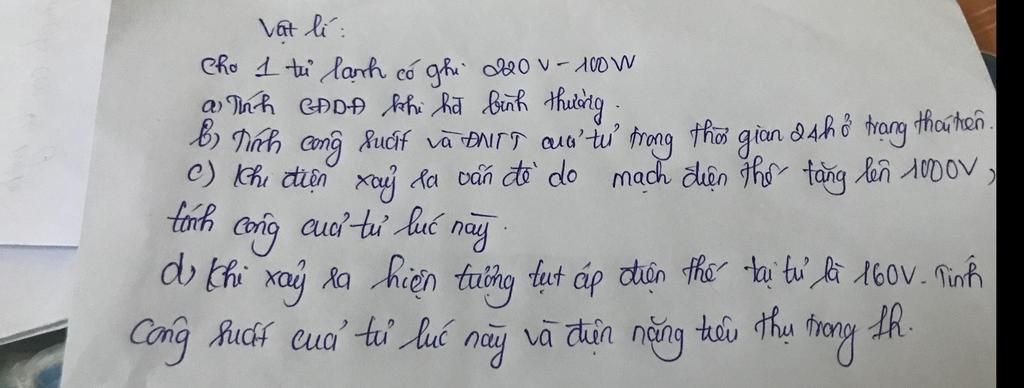 Vật lí:
Cho 1 tủ lạnh có ghi 220V-100W
a) Tính CĐDĐ khi hđ bình thường.
b) Tính công suất và ĐNTT của tủ trong thời gian 24h ở trạng thái trên.
c) Khi điện xảy ra vấn đề do mạch điện thế tăng lên 1000V,
tính công của tủ lúc này.
d) Khi xảy ra hiện tượng tụt áp điện thế tại tủ là 160V. Tính
công suất của tủ lúc này và điện năng tiêu thụ trong 1h.